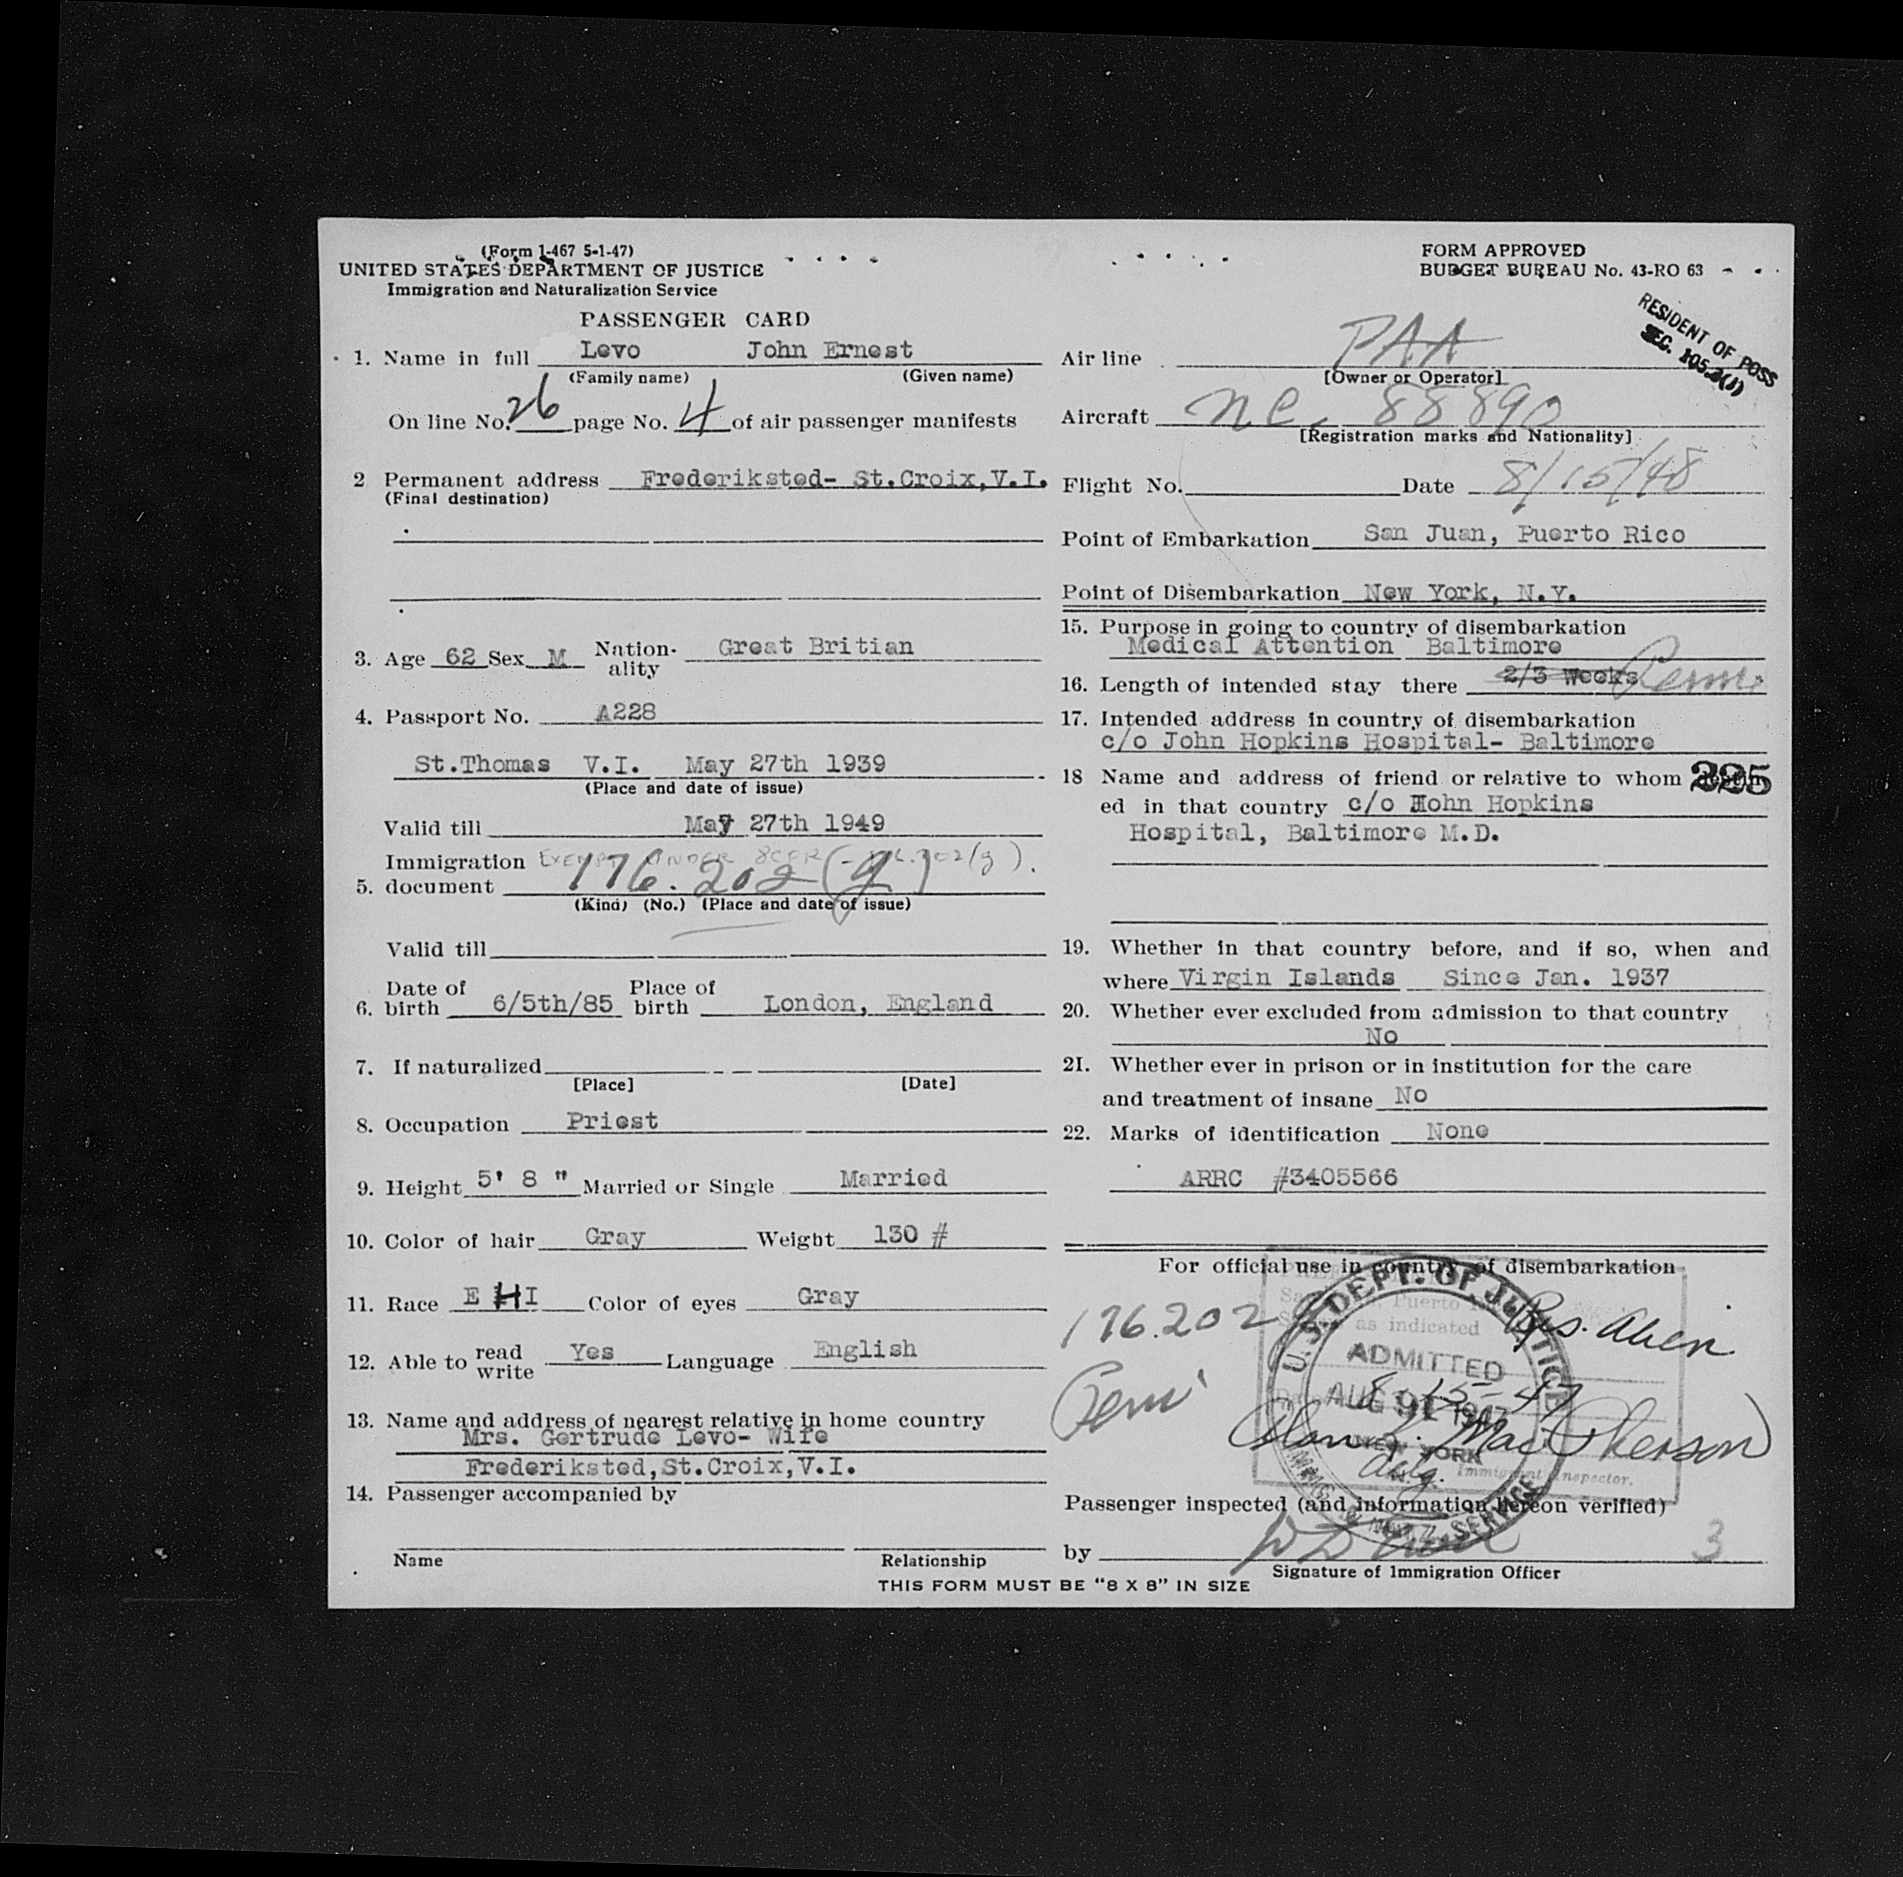 (Form I-467 5-1-47)
UNITED STATES DEPARTMENT OF JUSTICE
Immigration and Naturalization Service
FORM APPROVED
BUDGET BUREAU No. 43-RO 63
RESIDENT OF POSS
SEC. 105.3(J)
PASSENGER CARD
1. Name in full Levo John Ernest
(Family name) (Given name)
On line No. 26 page No. 4 of air passenger manifests
2 Permanent address Frederiksted- St.Croix,V.I.
(Final destination)
3. Age 62 Sex M Nation-ality Great Britian
4. Passport No. A228
St.Thomas V.I. May 27th 1939
(Place and date of issue)
Valid till May 27th 1949
Immigration EXEMPT UNDER 8CFR
5. document 176.202(g)
(Kind) (No.) (Place and date of issue)
Valid till
6. Date of birth 6/5th/85 Place of birth London, England
7. If naturalized
[Place] [Date]
8. Occupation Priest
9. Height 5' 8 " Married or Single Married
10. Color of hair Gray Weight 130 #
11. Race E H I Color of eyes Gray
12. Able to read write Yes Language English
13. Name and address of nearest relative in home country
Mrs. Gertrude Levo- Wife
Frederiksted,St.Croix,V.I.
14. Passenger accompanied by
Name Relationship
Air line PAA
[Owner or Operator]
Aircraft NC 88890
[Registration marks and Nationality]
Flight No. Date 8/15/48
Point of Embarkation San Juan, Puerto Rico
Point of Disembarkation New York, N.Y.
15. Purpose in going to country of disembarkation
Medical Attention Baltimore
16. Length of intended stay there 2/3 Weeks Perm.
17. Intended address in country of disembarkation
c/o John Hopkins Hospital- Baltimore
18 Name and address of friend or relative to whom 225
ed in that country c/o John Hopkins
Hospital, Baltimore M.D.
19. Whether in that country before, and if so, when and
where Virgin Islands Since Jan. 1937
20. Whether ever excluded from admission to that country
No
21. Whether ever in prison or in institution for the care
and treatment of insane No
22. Marks of identification None
ARRC #3405566
For official use in country of disembarkation
176.202 Res. Alien
as indicated
U.S. DEPT. OF JUSTICE
ADMITTED
8-15-47
AUG 1947
Perm
MacPherson
NEW YORK
Actg. Immigrant Inspector.
SERVICE
Passenger inspected (and information hereon verified)
by
3
Signature of Immigration Officer
THIS FORM MUST BE "8 X 8" IN SIZE